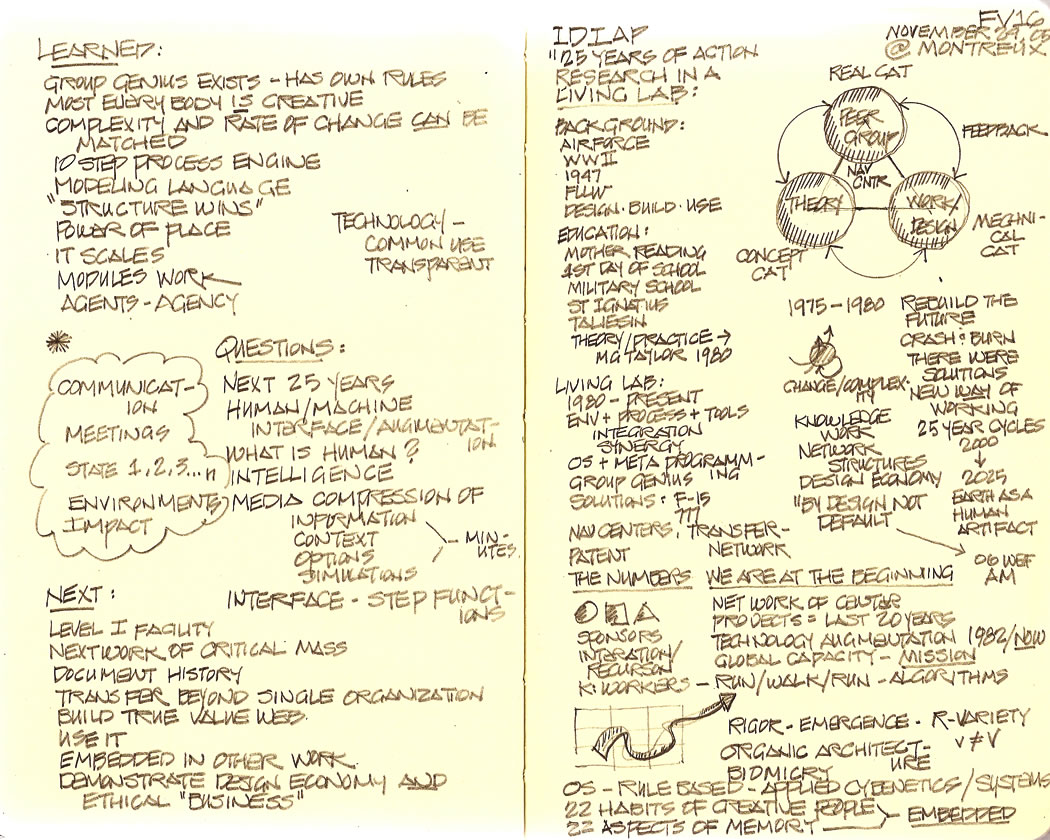 LEARNED:
GROUP GENIUS EXISTS - HAS OWN RULES
MOST EVERY BODY IS CREATIVE
COMPLEXITY AND RATE OF CHANGE CAN BE
MATCHED
10 STEP PROCESS ENGINE
MODELING LANGUAGE
"STRUCTURE WINS"
POWER OF PLACE
IT SCALES
MODULES WORK
AGENTS - AGENCY
TECHNOLOGY -
COMMON USE
TRANSPARENT
COMMUNICAT-
ION
MEETINGS
STATE 1,2,3...n
ENVIRONMENTS
IMPACT
QUESTIONS:
NEXT 25 YEARS
HUMAN/MACHINE
INTERFACE/AUGMENTAT-
ION
WHAT IS HUMAN?
INTELLIGENCE
MEDIA COMPRESSION OF
INFORMATION
CONTEXT
OPTIONS
SIMULATIONS
- MIN-
UTES.
INTERFACE - STEP FUNCT-
IONS
NEXT:
LEVEL I FACILITY
NEXTWORK OF CRITICAL MASS
DOCUMENT HISTORY
TRANSFER BEYOND SINGLE ORGANIZATION
BUILD TRUE VALUE WEB.
USE IT
EMBEDDED IN OTHER WORK.
DEMONSTRATE DESIGN ECONOMY AND
ETHICAL "BUSINESS"
IDIAP
"25 YEARS OF ACTION
RESEARCH IN A
LIVING LAB:
FV16
NOVEMBER 29, 05
@ MONTREUX
BACKGROUND:
AIRFORCE
WWII
1947
FLLW
DESIGN · BUILD · USE
EDUCATION:
MOTHER READING
1ST DAY OF SCHOOL
MILITARY SCHOOL
ST IGNATIUS
TALIESIN
THEORY/PRACTICE →
MG TAYLOR 1980
LIVING LAB:
1980 - PRESENT
ENV + PROCESS + TOOLS
INTEGRATION
SYNERGY
OS + META PROGRAMM-
ING
GROUP GENIUS
SOLUTIONS: F-15
777
NAV CENTERS, TRANSFER-
NETWORK
PATENT
THE NUMBERS
REAL CAT
PEER
GROUP
FEEDBACK
NAV
CNTR
THEORY
WORK/
DESIGN
CONCEPT
CAT
MECHNI-
CAL
CAT
1975 - 1980
CHANGE/COMPLEX-
ITY
KNOWLEDGE
WORK
NETWORK
STRUCTURES
DESIGN ECONOMY
"BY DESIGN NOT
DEFAULT
REBUILD THE
FUTURE
CRASH & BURN
THERE WERE
SOLUTIONS
NEW WAY OF
WORKING
25 YEAR CYCLES
2000
↓
2025
EARTH AS A
HUMAN
ARTIFACT
06 WEF
AM
WE ARE AT THE BEGINNING
NET WORK OF CENTAR
PROJECTS = LAST 20 YEARS
TECHNOLOGY AUGMENTATION 1982/NOW
GLOBAL CAPACITY - MISSION
SPONSORS
INTERATION/
RECURSON
K:WORKERS - RUN/WALK/RUN - ALGORITHMS
RIGOR - EMERGENCE - R-VARIETY
V ≠ V
ORGANIC ARCHITECT-
URE
BIOMICRY
OS - RULE BASED - APPLIED CYBENETICS/SYSTEMS
22 HABITS OF CREATIVE PEOPLE
22 ASPECTS OF MEMORY
EMBEDDED